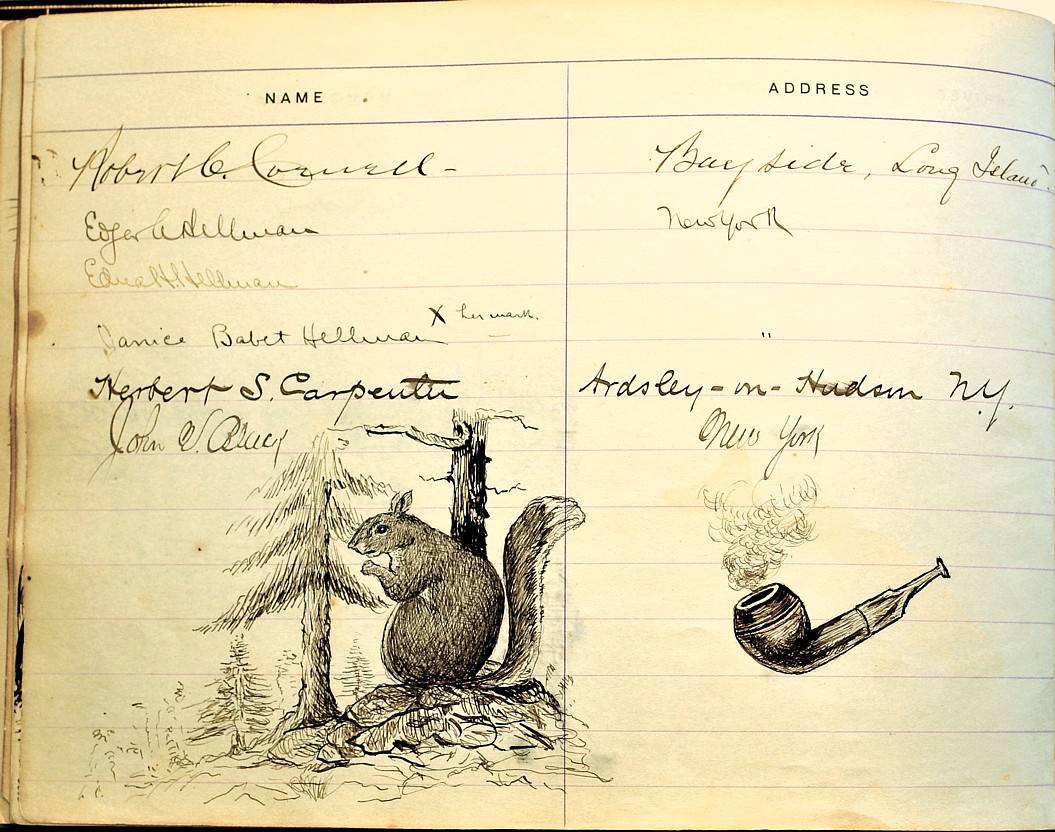 NAME ADDRESS
Robert C. Cornell - Bayside, Long Island.
Edgar A Hellman New York
Edna H. Hellman
Janice Babet Hellman X her mark. "
Herbert S. Carpenter Ardsley-on-Hudson N.Y.
John V. New York